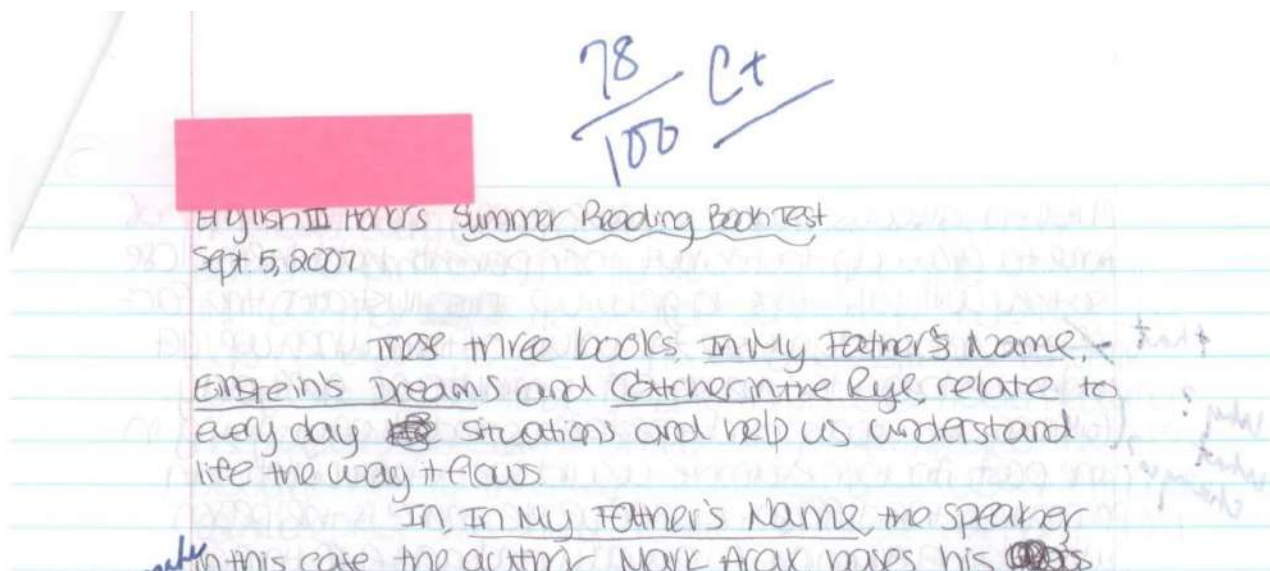 78
/100 C+
English III Honors Summer Reading Book Test
Sept. 5, 2007
These three books, In My Father's Name,
Einstein's Dreams and Catcher in the Rye, relate to
every day situations and help us understand
life the way it flows.
In, In My Father's Name, the speaker
in this case the author Mark Arax bases his